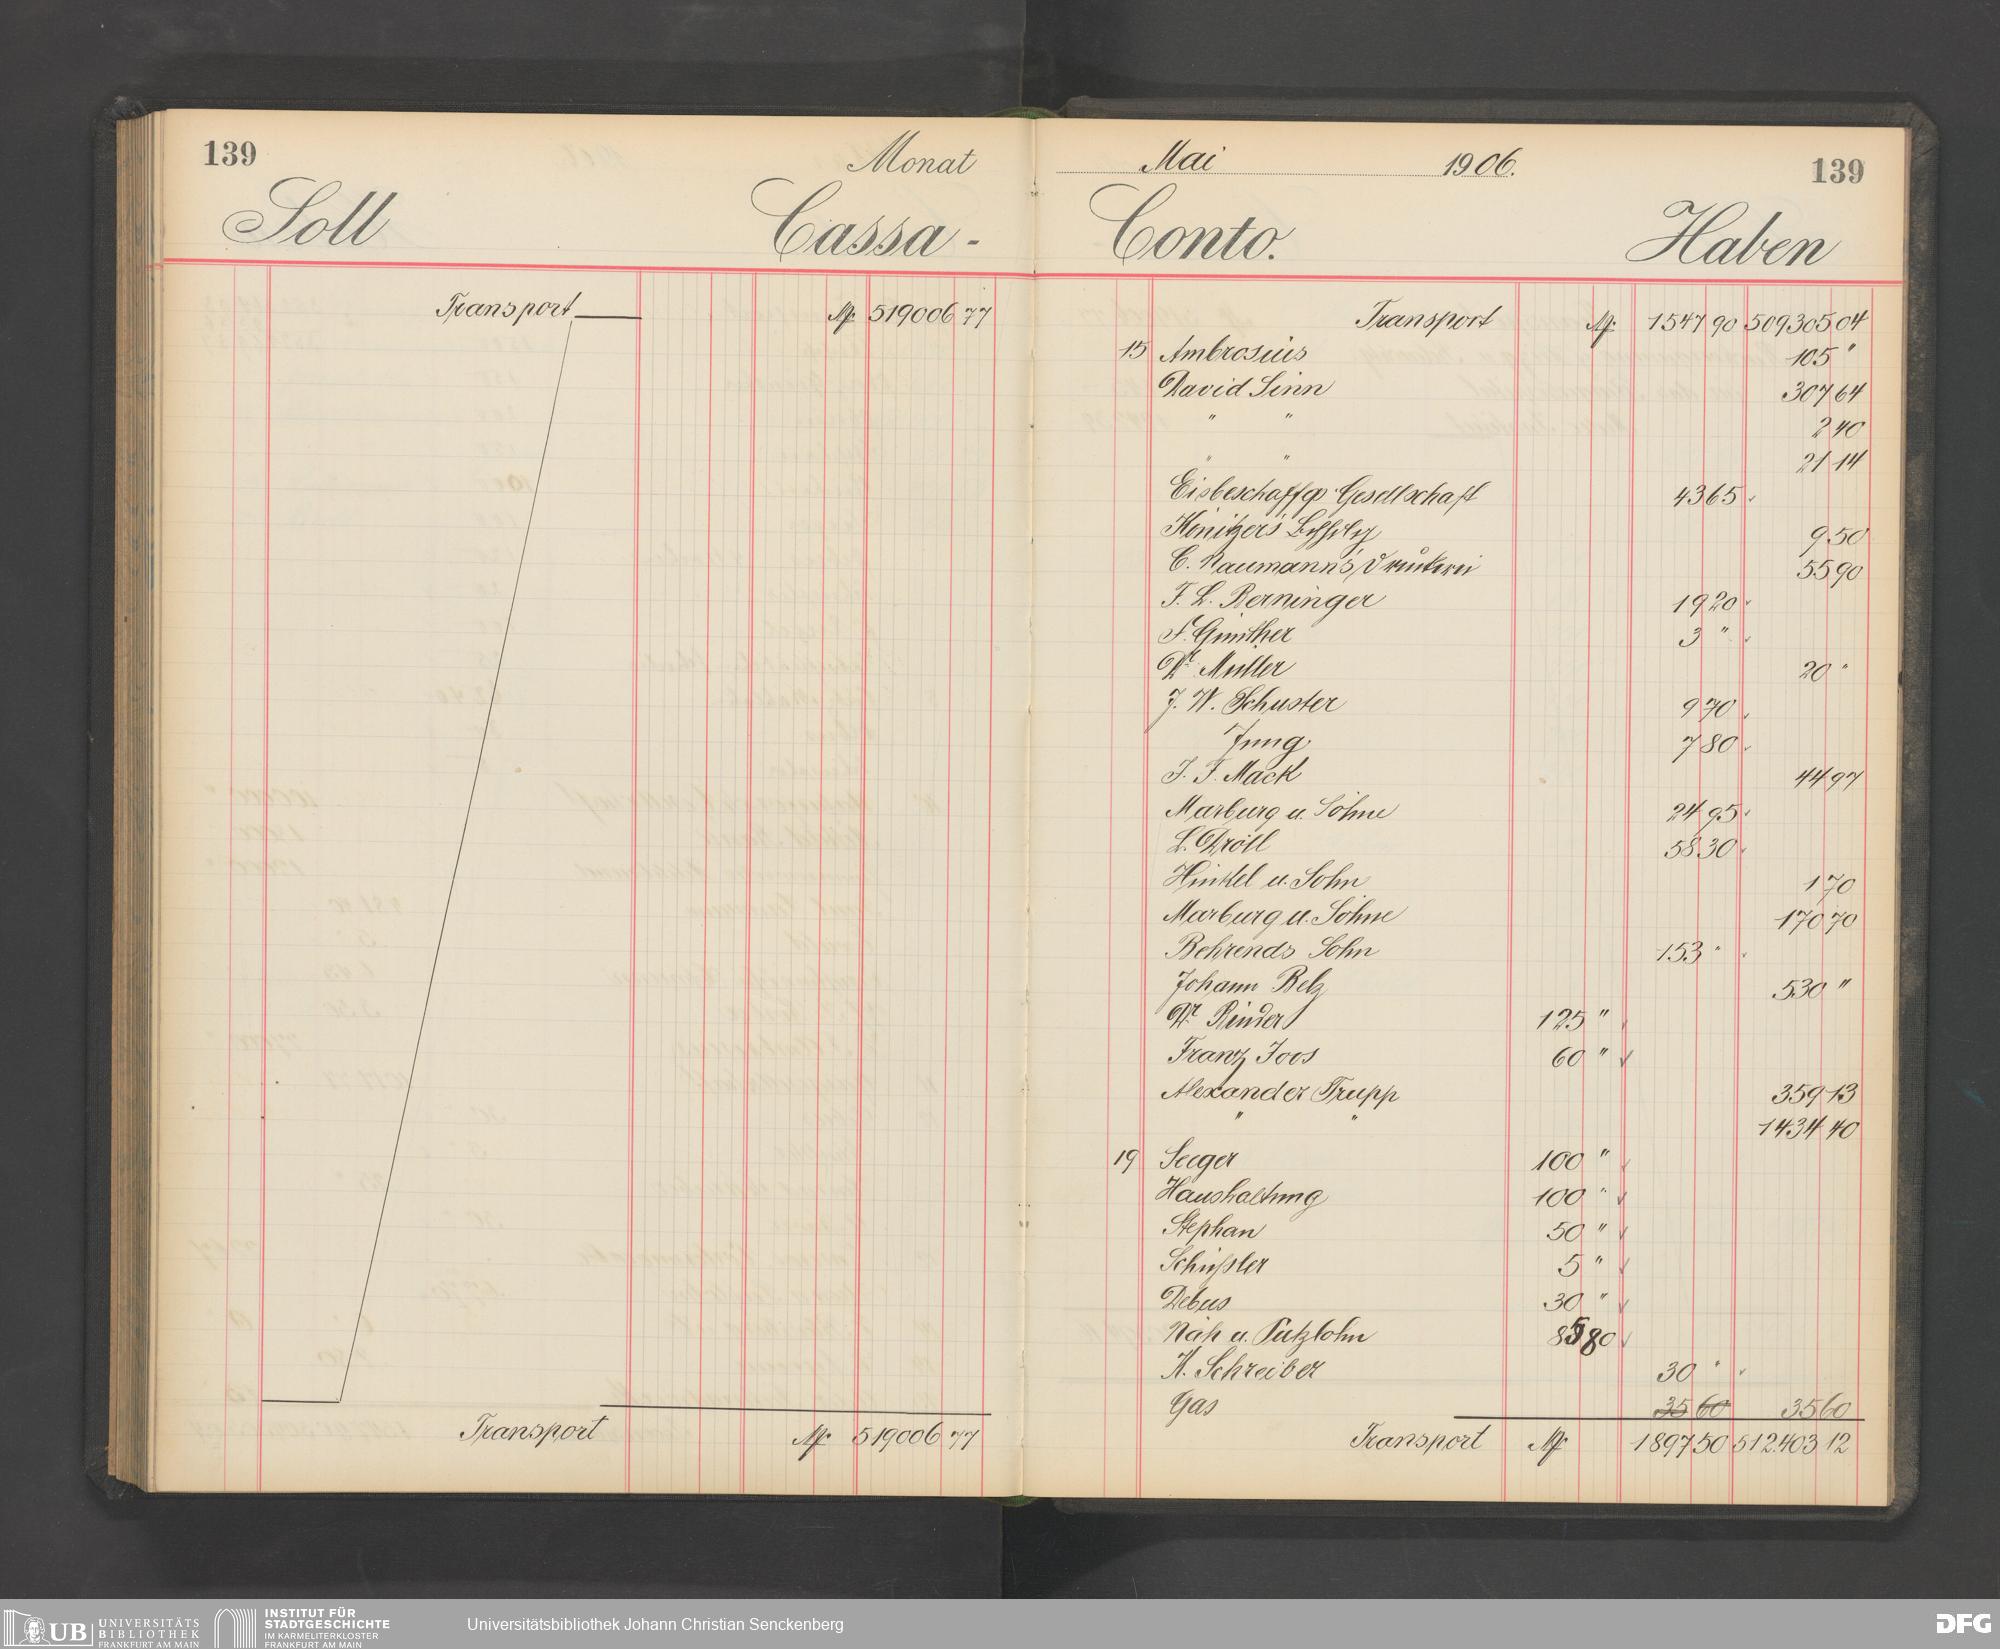 139
Monat
Soll
Cassa-
Transport M 519006 77
Transport M 519006 77
Mai 1906.
139
Conto.
Haben
Transport M 1547 90 509305 04
15 Ambrosius 105 "
David Sinn 307 64
" " 2 40
" " 21 14
Eisbeschaffgs. Gesellschaft 43 65
Könitzer's 9 50
C. Naumann's Druckerei 55 90
F. L. Berninger 19 20
F. Günther 3 "
Dr. Müller 20 "
J. W. Schuster 9 70
Jung 7 80
J. F. Mack 44 97
Marburg u. Söhne 24 95
L. Dröll 58 30
Hinkel u. Sohn 1 70
Marburg u. Söhne 170 70
Behrends Sohn 153 "
Johann Belz 530 "
Dr. Binder 125 "
Franz Joos 60 "
Alexander Trupp 359 13
" " 1434 40
19 Seeger 100 "
Haushaltung 100 "
Stephan 50 "
Schüßler 5 "
Debus 30 "
Näh u. Putzlohn 85 80
K. Schreiber 30 "
Gas 35 60 35 60
Transport M 1897 50 512403 12
UB UNIVERSITÄTS
BIBLIOTHEK
FRANKFURT AM MAIN
INSTITUT FÜR
STADTGESCHICHTE
IM KARMELITERKLOSTER
FRANKFURT AM MAIN
Universitätsbibliothek Johann Christian Senckenberg
DFG